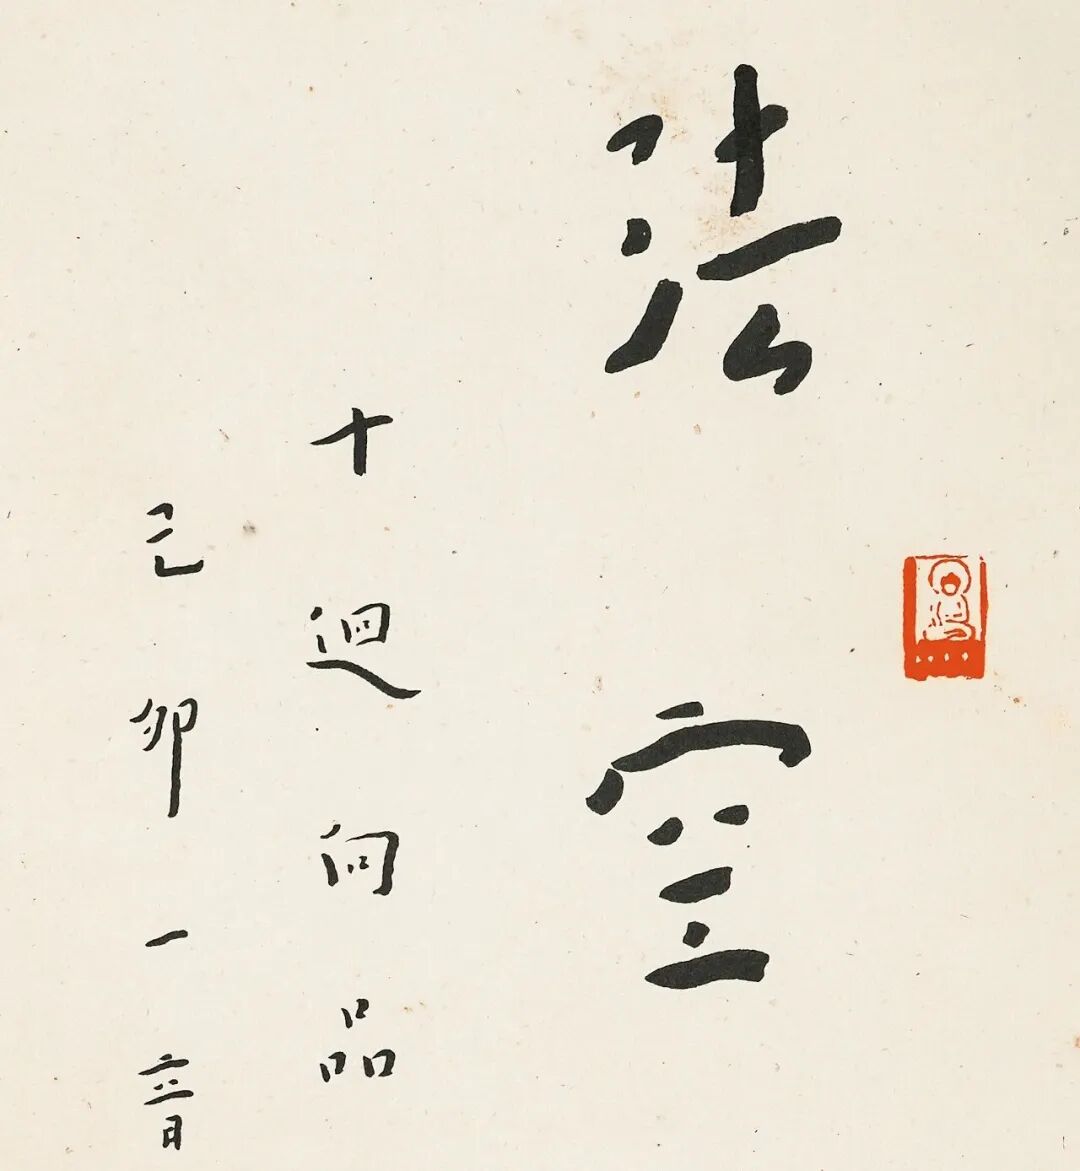 法空
十迴向品
己卯一音